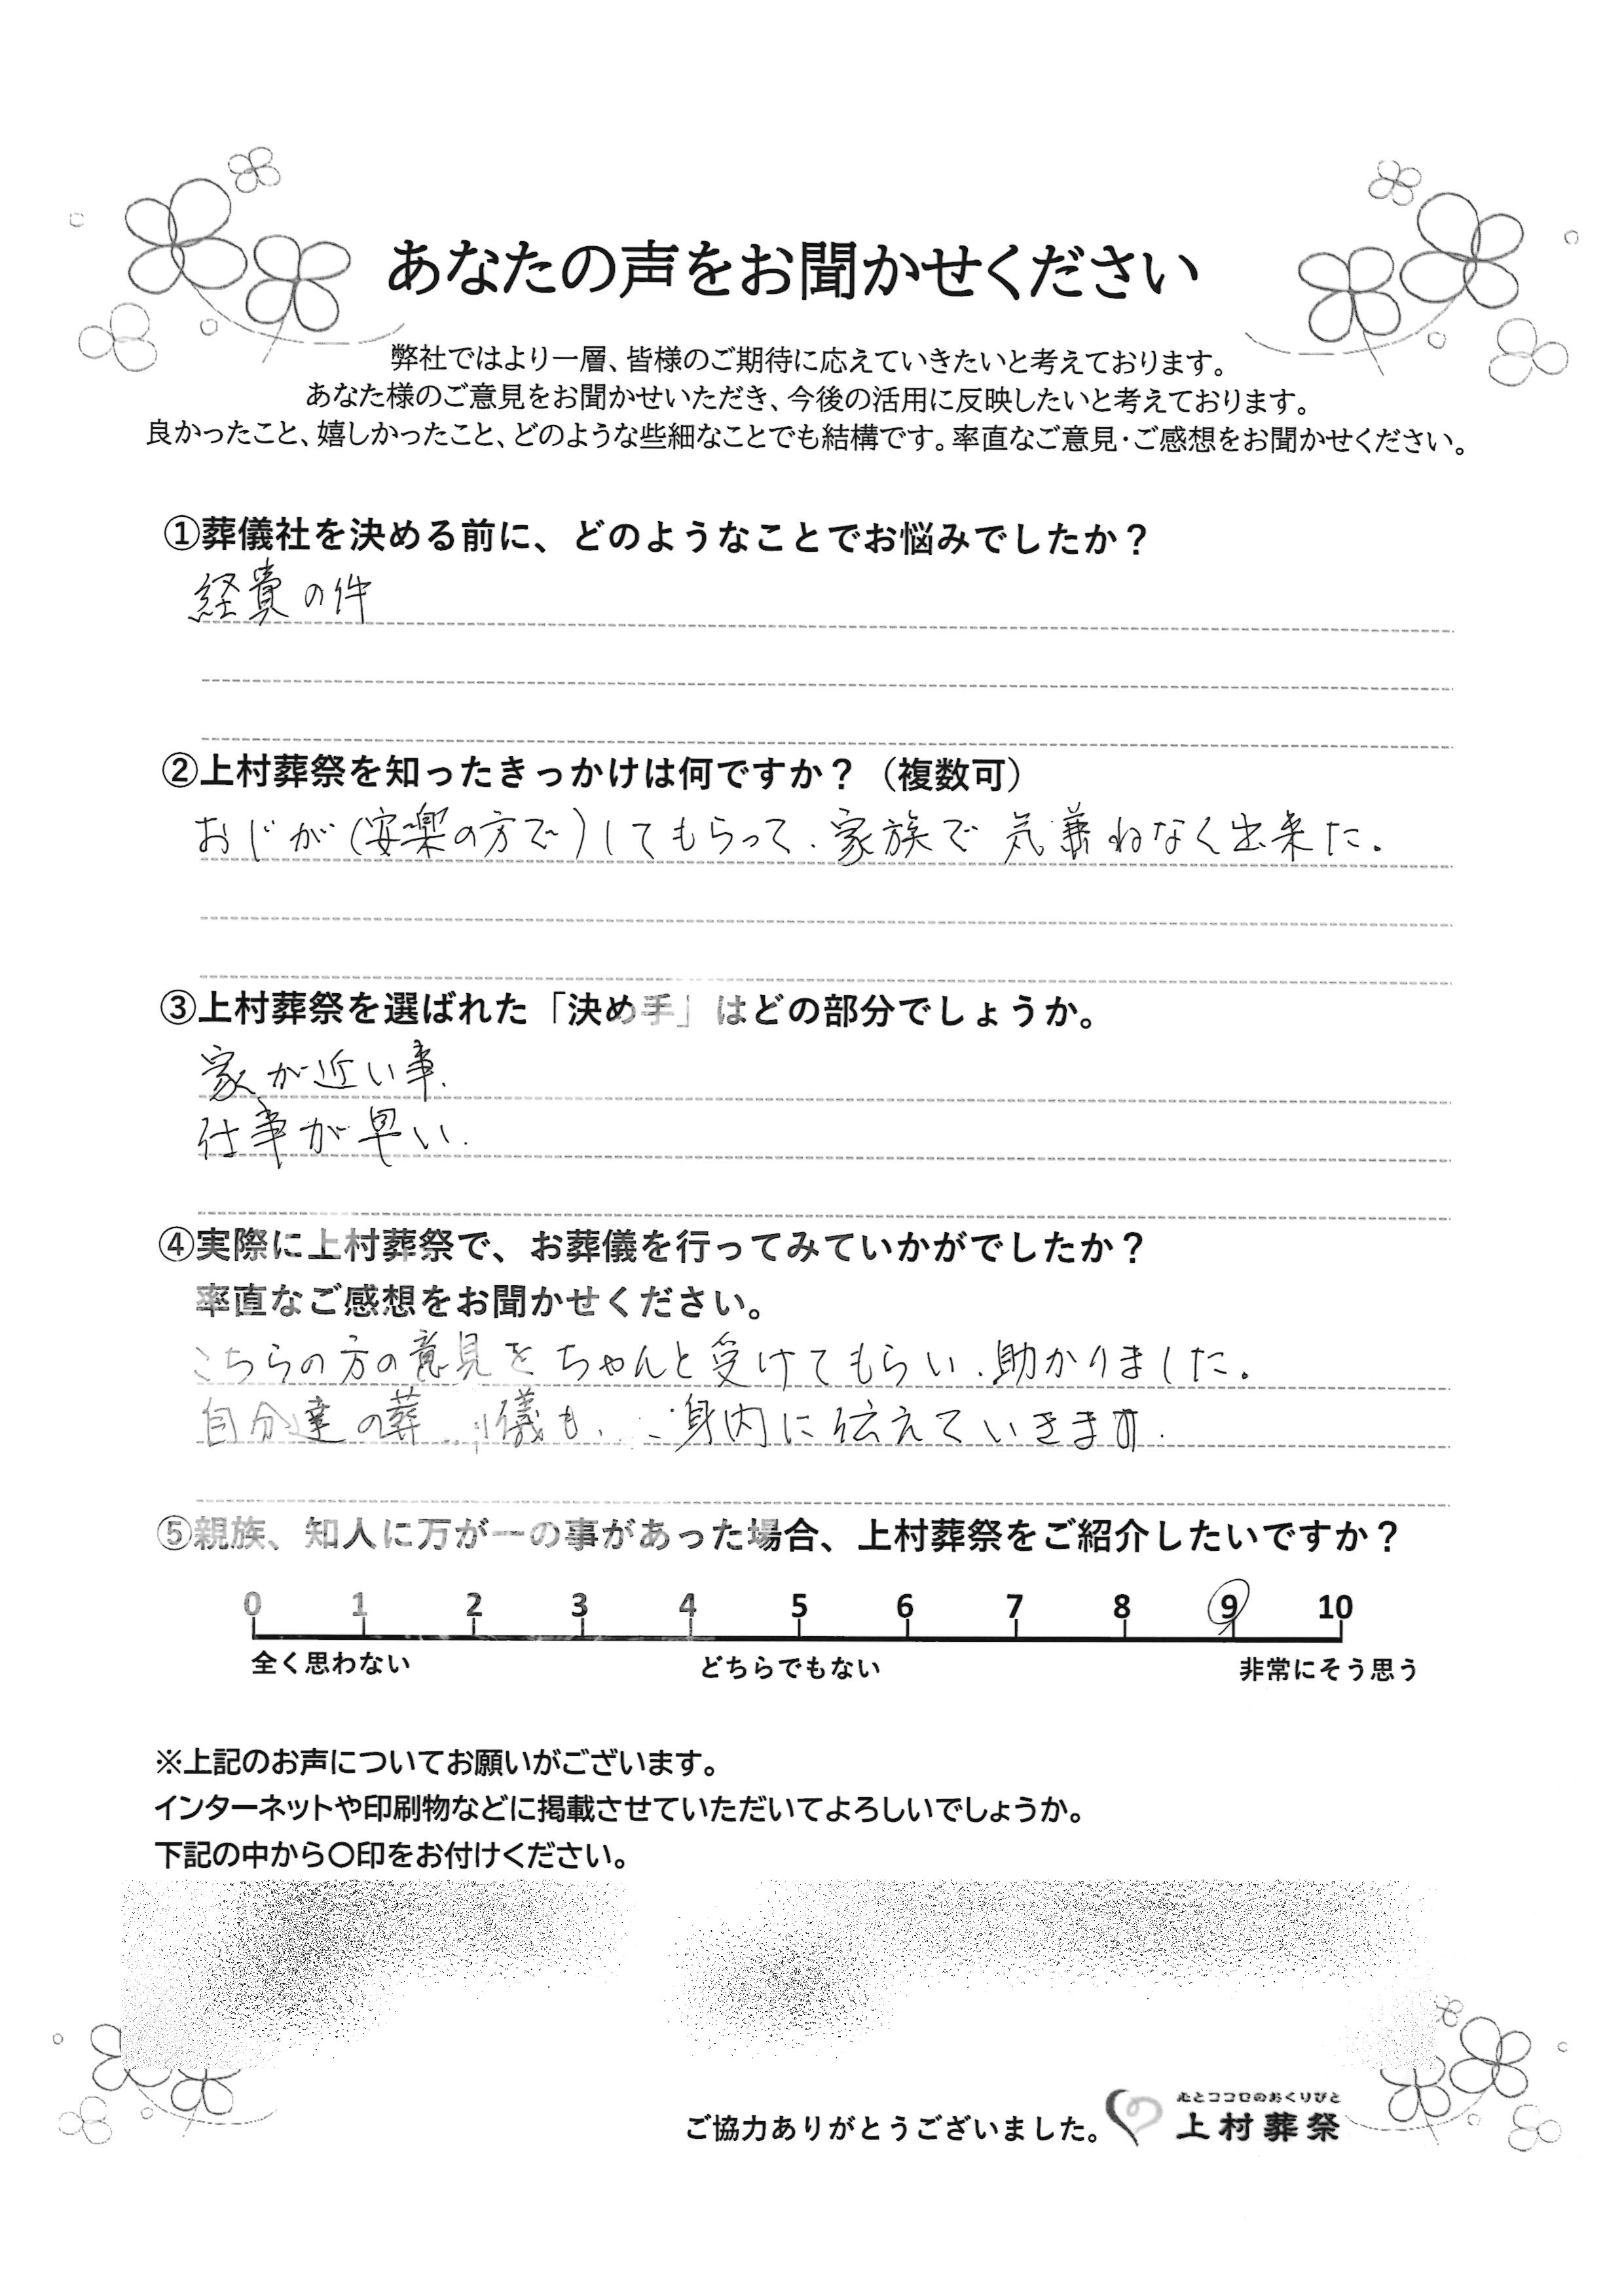 あなたの声をお聞かせください
弊社ではより一層、皆様のご期待に応えていきたいと考えております。
あなた様のご意見をお聞かせいただき、今後の活用に反映したいと考えております。
良かったこと、嬉しかったこと、どのような些細なことでも結構です。率直なご意見・ご感想をお聞かせください。
①葬儀社を決める前に、どのようなことでお悩みでしたか？
経費の件
②上村葬祭を知ったきっかけは何ですか？（複数可）
おじが(安楽の方で)してもらって、家族で気兼ねなく出来た。
③上村葬祭を選ばれた「決め手」はどの部分でしょうか。
家が近い事、
仕事が早い.
④実際に上村葬祭で、お葬儀を行ってみていかがでしたか？
率直なご感想をお聞かせください。
こちらの方の意見をちゃんと受けてもらい、助かりました。
自分達の葬儀も、身内に伝えていきます.
⑤親族、知人に万が一の事があった場合、上村葬祭をご紹介したいですか？
0 1 2 3 4 5 6 7 8 9 10
全く思わない どちらでもない 非常にそう思う
※上記のお声についてお願いがございます。
インターネットや印刷物などに掲載させていただいてよろしいでしょうか。
下記の中から〇印をお付けください。
心とココロのおくりびと
ご協力ありがとうございました。 上村葬祭